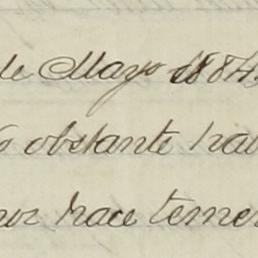 de Mayo 1884
obstante ha
hace temer